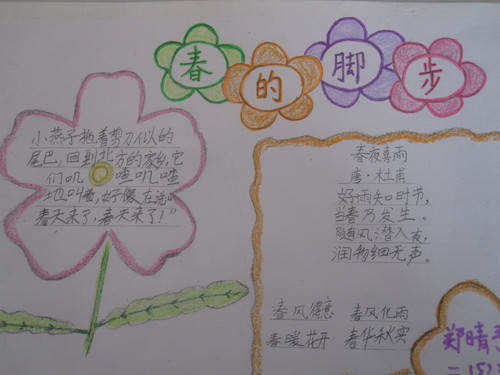 春的脚步
小燕子拖着剪刀似的
尾巴，回到北方的家乡，它
们叽喳叽喳
地叫着，好像在说：“
春天来了，春天来了！”
春夜喜雨
唐·杜甫
好雨知时节，
当春乃发生。
随风潜入夜，
润物细无声。
春风得意 春风化雨
春暖花开 春华秋实
郑晴